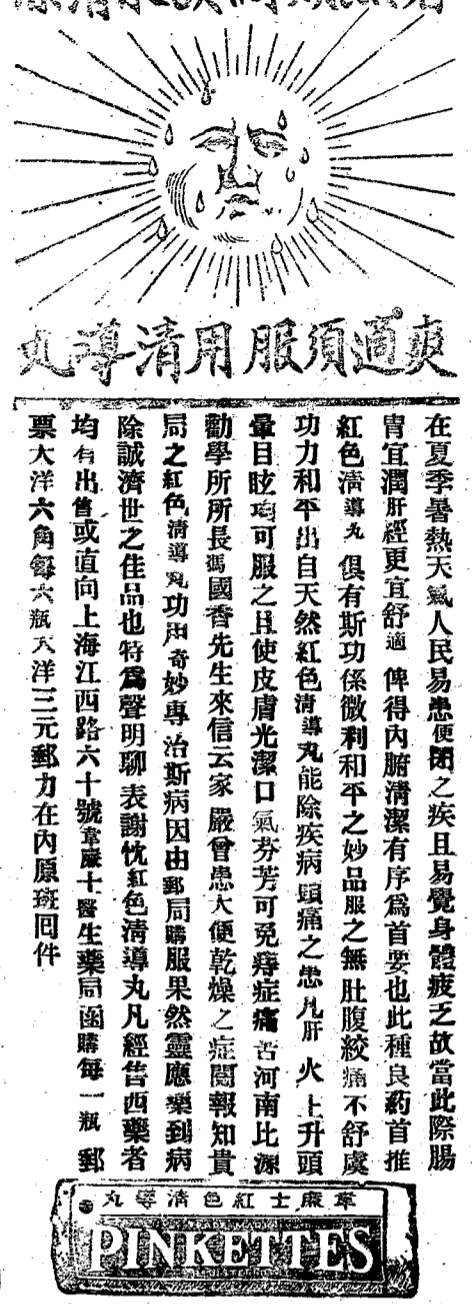 爽適須服用清導丸
在夏季暑熱天氣人民易患便閉之疾且易覺身體疲乏故當此際腸
胃宜潤肝經更宜舒適俾得內腑清潔有序爲首要也此種良葯首推
紅色清導丸俱有斯功係微利和平之妙品服之無肚腹絞痛不舒虞
功力和平出自天然紅色清導丸能除疾病頭痛之患凡肝火上升頭
暈目眩均可服之且使皮膚光潔口氣芬芳可免痔症痛苦河南比源
勸學所所長馮國香先生來信云家嚴曾患大便乾燥之症閱報知貴
局之紅色清導丸功用奇妙專治斯病因由郵局購服果然靈應藥到病
除誠濟世之佳品也特爲聲明聊表謝忱紅色清導丸凡經售西藥者
均有出售或直向上海江西路六十號韋廉士醫生藥局函購每一瓶郵
票大洋六角每六瓶大洋三元郵力在內原班囘件
韋廉士紅色清導丸
PINKETTES